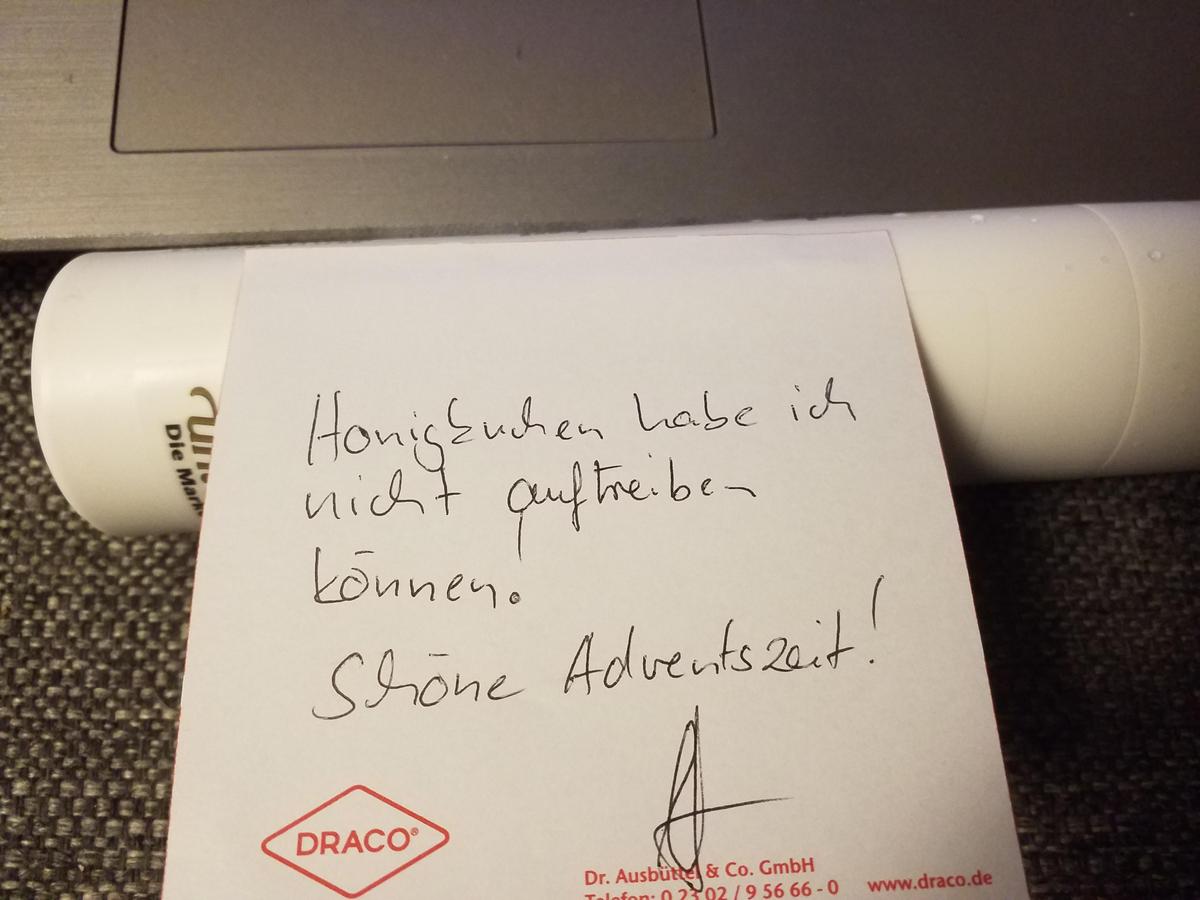 Honigkuchen habe ich
nicht auftreiben
können.
Schöne Adventszeit!
Die Mark
DRACO®
Dr. Ausbüttel & Co. GmbH
Telefon: 0 23 02 / 9 56 66 - 0 www.draco.de